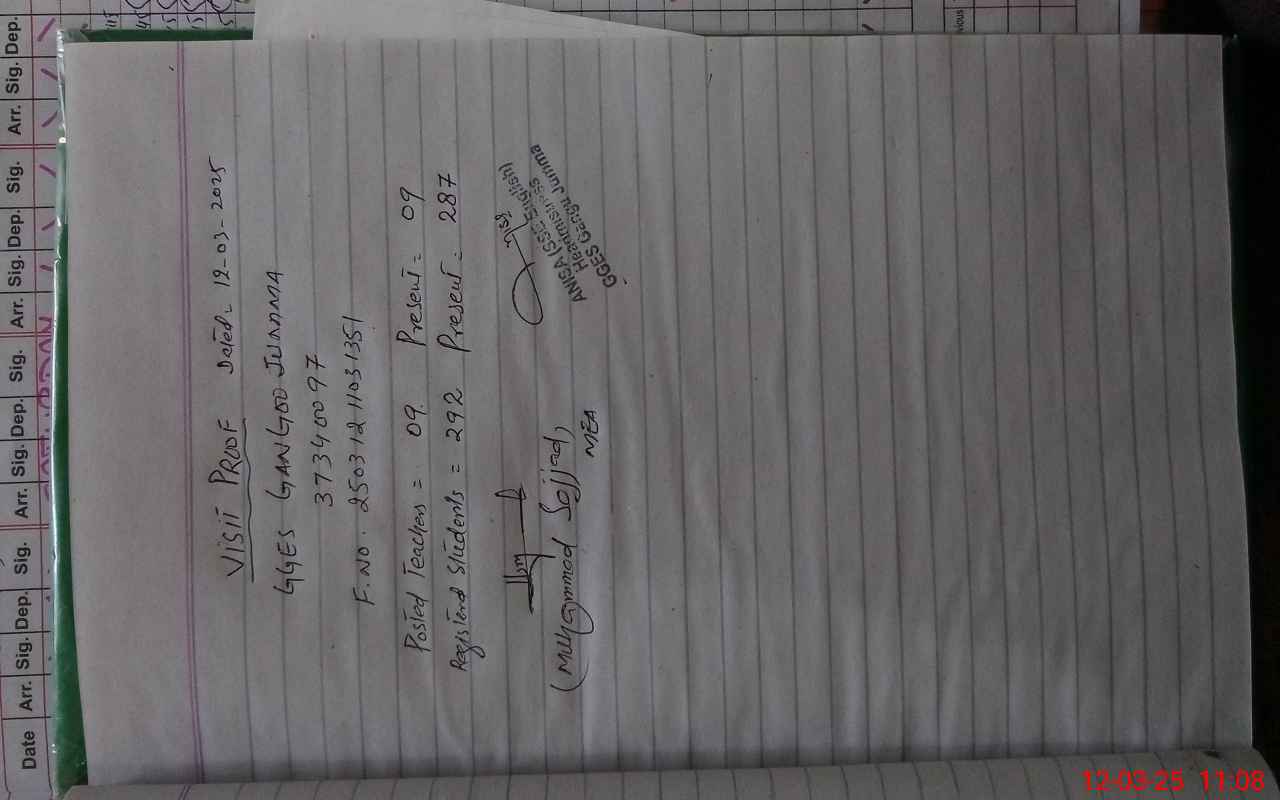 VISIT PROOF Dated= 12-03-2025
GGES GANGOO JUMMA
37340097
F.NO. 250312 11031351
Posted Teachers = 09. Present = 09
Registerd Students = 292 Present = 287
ANISA (SSE English)
Headmistress
GGES Gangu Jumma
(Muhammad Sajjad)
MEA
Date Arr. Sig. Dep. Sig. Arr. Sig. Dep. Sig. Arr. Sig. Dep. Sig. Arr. Sig. Dep.
12-03-25 11:08